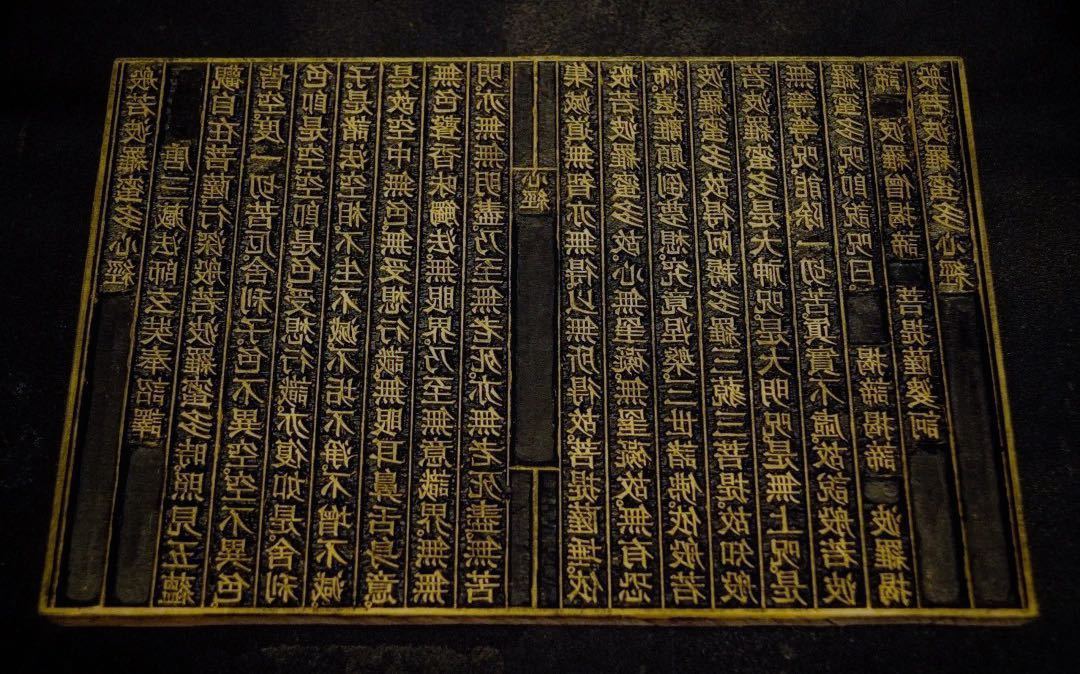 般若波羅蜜多心經
唐三藏法師玄奘奉詔譯
觀自在菩薩。行深般若波羅蜜多時。照見五蘊
皆空。度一切苦厄。舍利子。色不異空。空不異色
色即是空。空即是色。受想行識。亦復如是。舍利
子。是諸法空相。不生不滅。不垢不淨。不增不減
是故空中無色。無受想行識。無眼耳鼻舌身意
無色聲香味觸法。無眼界。乃至無意識界。無無
明。亦無無明盡。乃至無老死。亦無老死盡。無苦
心經
集滅道。無智亦無得。以無所得故。菩提薩埵。依
般若波羅蜜多故。心無罣礙。無罣礙故。無有恐
怖。遠離顛倒夢想。究竟涅槃。三世諸佛。依般若
波羅蜜多故。得阿耨多羅三藐三菩提。故知般
若波羅蜜多。是大神呪。是大明呪。是無上呪。是
無等等呪。能除一切苦。眞實不虛。故說般若波
羅蜜多呪。即說呪曰。 揭諦揭諦 波羅揭
諦 波羅僧揭諦 菩提薩婆訶
般若波羅蜜多心經